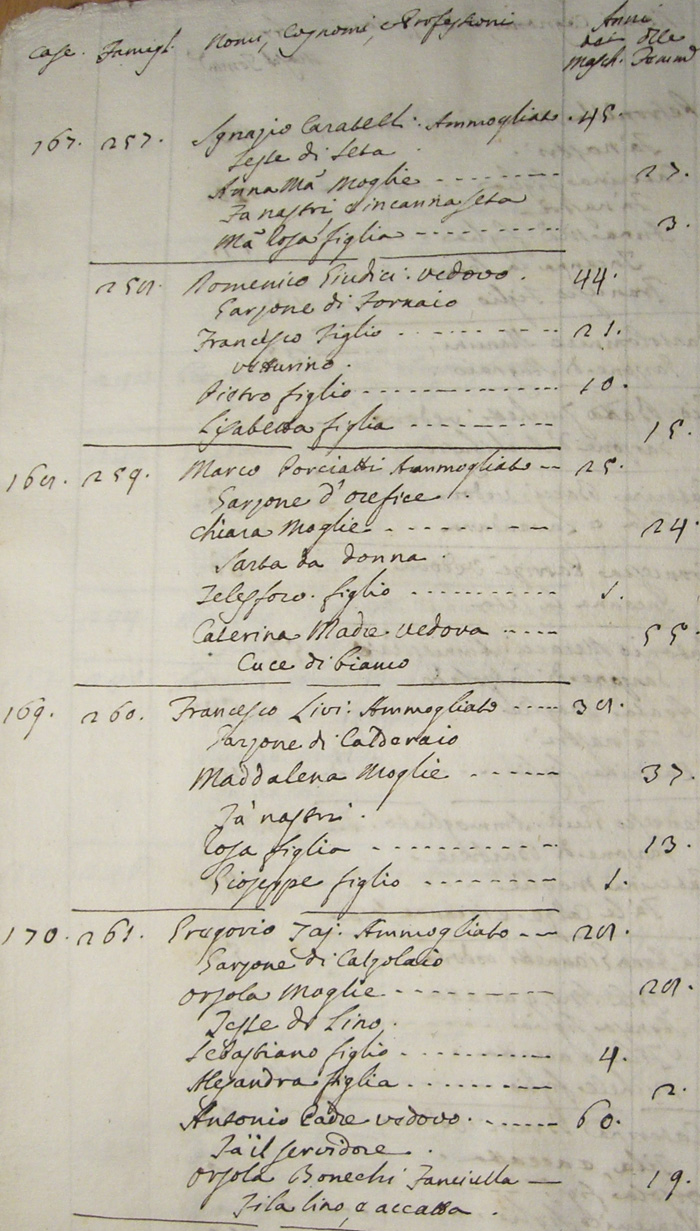 Case. Famigl. Nomi, Cognomi, e Professioni Anni dei Masch. delle Femm.
167. 257. Ignazio Carabelli. Ammogliato. 45.
Tesse di Seta
Anna Ma. Moglie 27.
Fa nastri, e incanna seta
Ma. Rosa figlia 3.
258. Domenico Giudici. vedovo. 44.
Garzone di Fornaio
Francesco figlio 21.
vetturino.
Pietro figlio 10.
Lisabetta figlia 15.
168. 259. Marco Porciatti Ammogliato 25.
Garzone d'orefice.
Chiara Moglie 24
Sarta da donna.
Telesforo. figlio 1.
Caterina Madre vedova 55.
Cuce di bianco
169. 260. Francesco Livi. Ammogliato 38.
Garzone di Calderaio
Maddalena Moglie 37.
Fa nastri.
Rosa figlia 13.
Gioseppe figlio 1.
170. 261. Gregorio Taj. Ammogliato 28.
Garzone di Calzolaio
Orsola Moglie 28.
Tesse di Lino.
Sebastiano figlio 4.
Alesandra figlia 2.
Antonio Padre vedovo. 60.
Fa il servidore.
Orsola Bonechi Fanciulla 19.
Fila lino, e accatta.